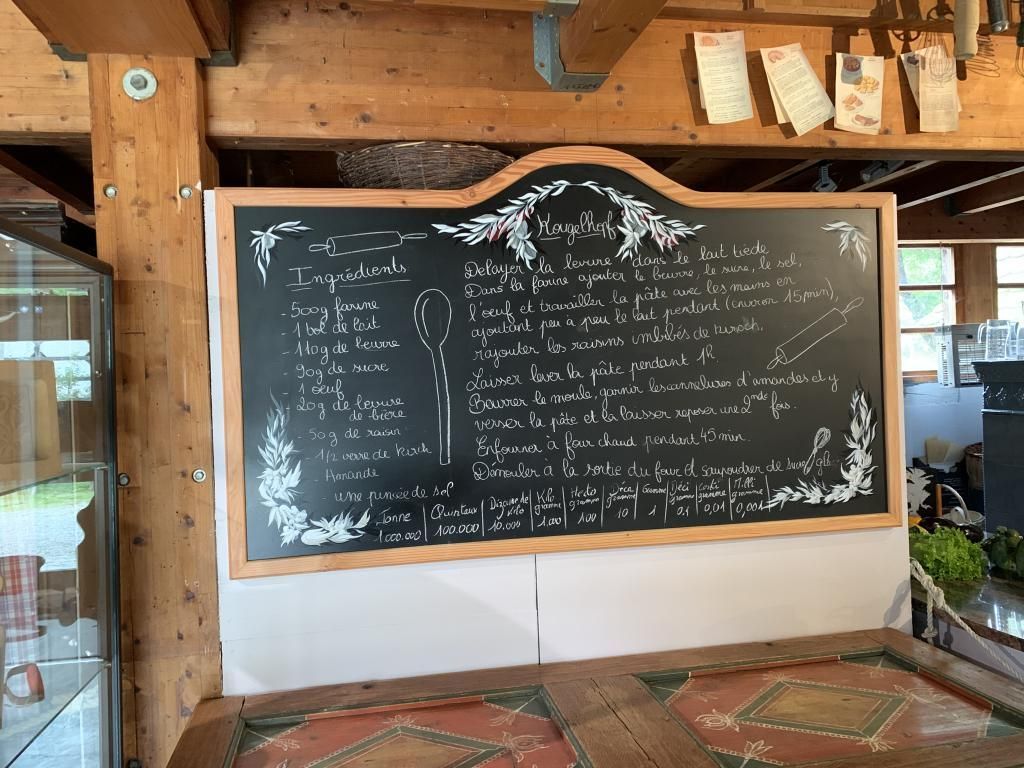 Kougelhopf
Ingrédients
- 500g farine
- 1 bol de lait
- 110g de beurre
- 90g de sucre
- 1 oeuf
- 20g de levure
de bière
- 50g de raisin
- 1/2 verre de kirch
- Amande
- une pincée de sel
Délayer la levure dans le lait tiède
Dans la farine ajouter le beurre, le sucre, le sel,
l'oeuf et travailler la pâte avec les mains en
ajoutant peu à peu le lait pendant (environ 15min),
rajouter les raisins imbibés de kirsch.
Laisser lever la pâte pendant 1h.
Beurrer le moule, garnir les cannelures d'amandes et y
verser la pâte et la laisser reposer une 2nde fois.
Enfourner à four chaud pendant 45 min.
Démouler à la sortie du four et saupoudrer de sucre gl
Tonne | Quintaux | Dizaine de kilo | Kilo gramme | Hecto gramme | Déca gramme | Gramme | Déci gramme | Centi gramme | Milli gramme
1000.000 | 100.000 | 10.000 | 1.000 | 100 | 10 | 1 | 0,1 | 0,01 | 0,001